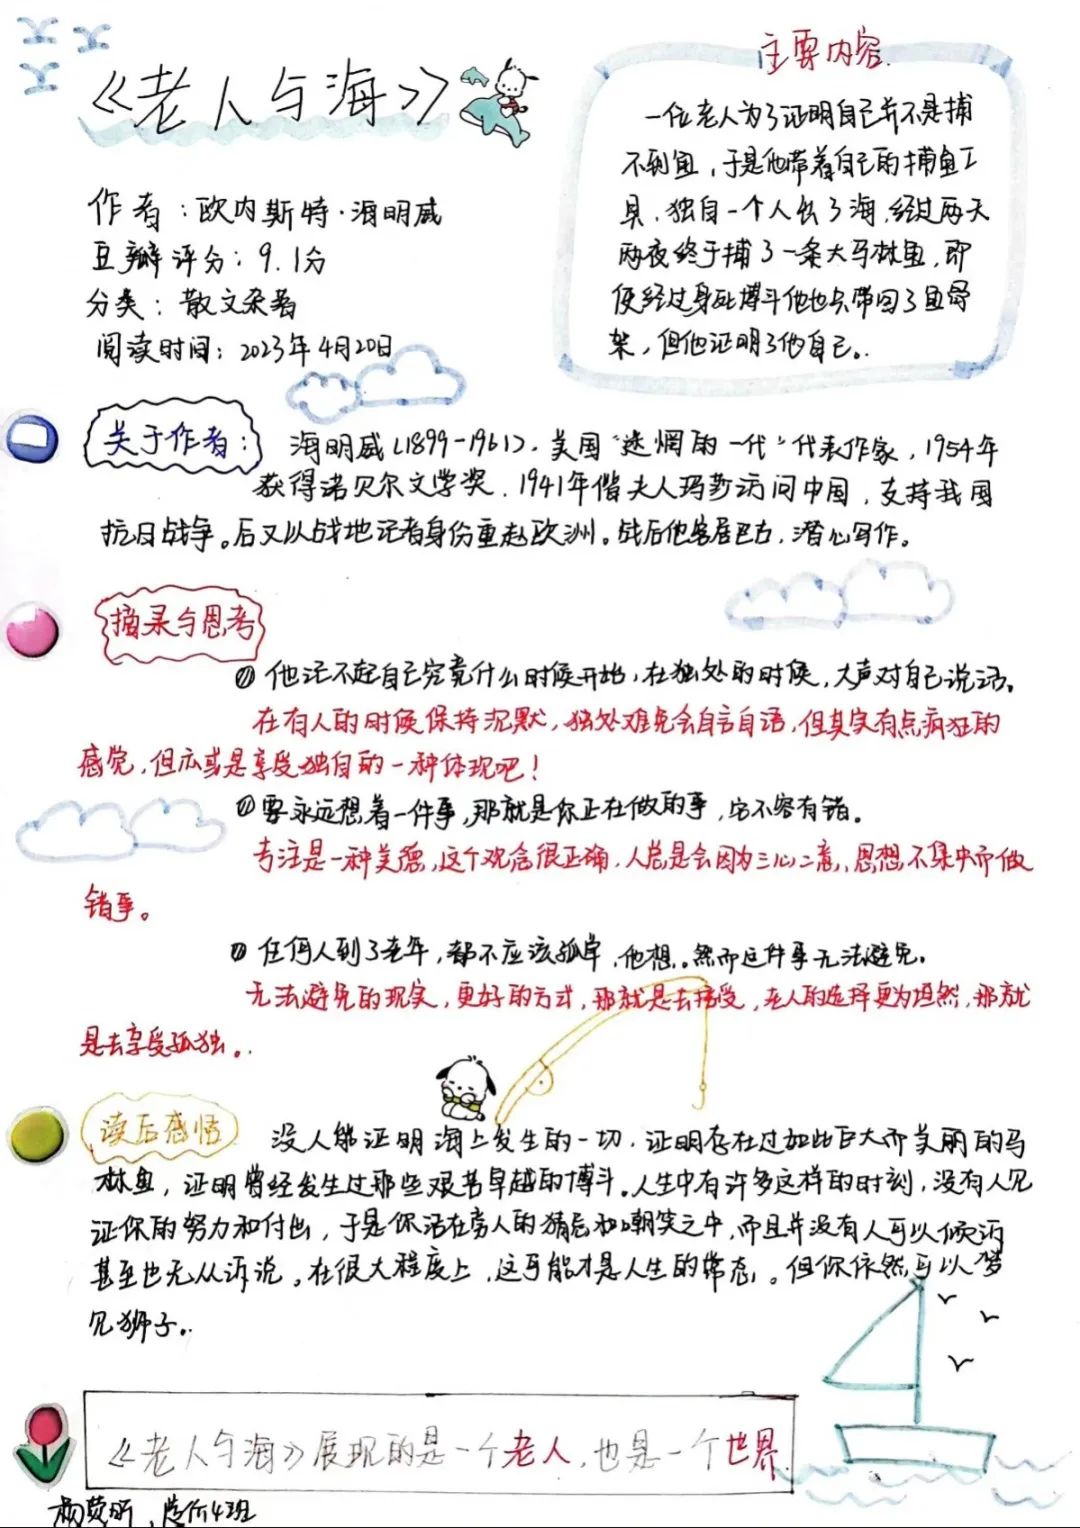 《老人与海》
作者：欧内斯特·海明威
豆瓣评分：9.1分
分类：散文杂著
阅读时间：2023年4月20日
主要内容
一位老人为了证明自己并不是捕
不到鱼，于是他带着自己的捕鱼工
具，独自一个人出了海，经过两天
两夜终于捕了一条大马林鱼，即
便经过身死搏斗他也只带回了鱼骨
架，但他证明了他自己。
关于作者：
海明威（1899-1961），美国“迷惘的一代”代表作家，1954年
获得诺贝尔文学奖，1941年偕夫人玛莎访问中国，支持我国
抗日战争。后又以战地记者身份重赴欧洲。战后他客居巴古，潜心写作。
摘录与思考
他记不起自己究竟什么时候开始，在独处的时候，大声对自己说话。
在有人的时候保持沉默，独处难免会自言自语，但其实有点疯狂的
感觉，但亦或是享受独自的一种体现吧！
要永远想着一件事，那就是你正在做的事，它不容有错。
专注是一种美德，这个观念很正确，人总是会因为三心二意，思想不集中而做
错事。
任何人到了老年，都不应该孤单，他想。然而这件事无法避免。
无法避免的现实，更好的方式，那就是去接受，老人的选择更为坦然，那就
是去享受孤独。
读后感悟
没人能证明海上发生的一切，证明存在过如此巨大而美丽的马
林鱼，证明曾经发生过那些艰苦卓越的搏斗。人生中有许多这样的时刻，没有人见
证你的努力和付出，于是你活在旁人的猜忌和嘲笑之中，而且并没有人可以倾诉
甚至也无从诉说。在很大程度上，这可能才是人生的常态。但你依然可以梦
见狮子。
《老人与海》展现的是一个老人，也是一个世界
4班